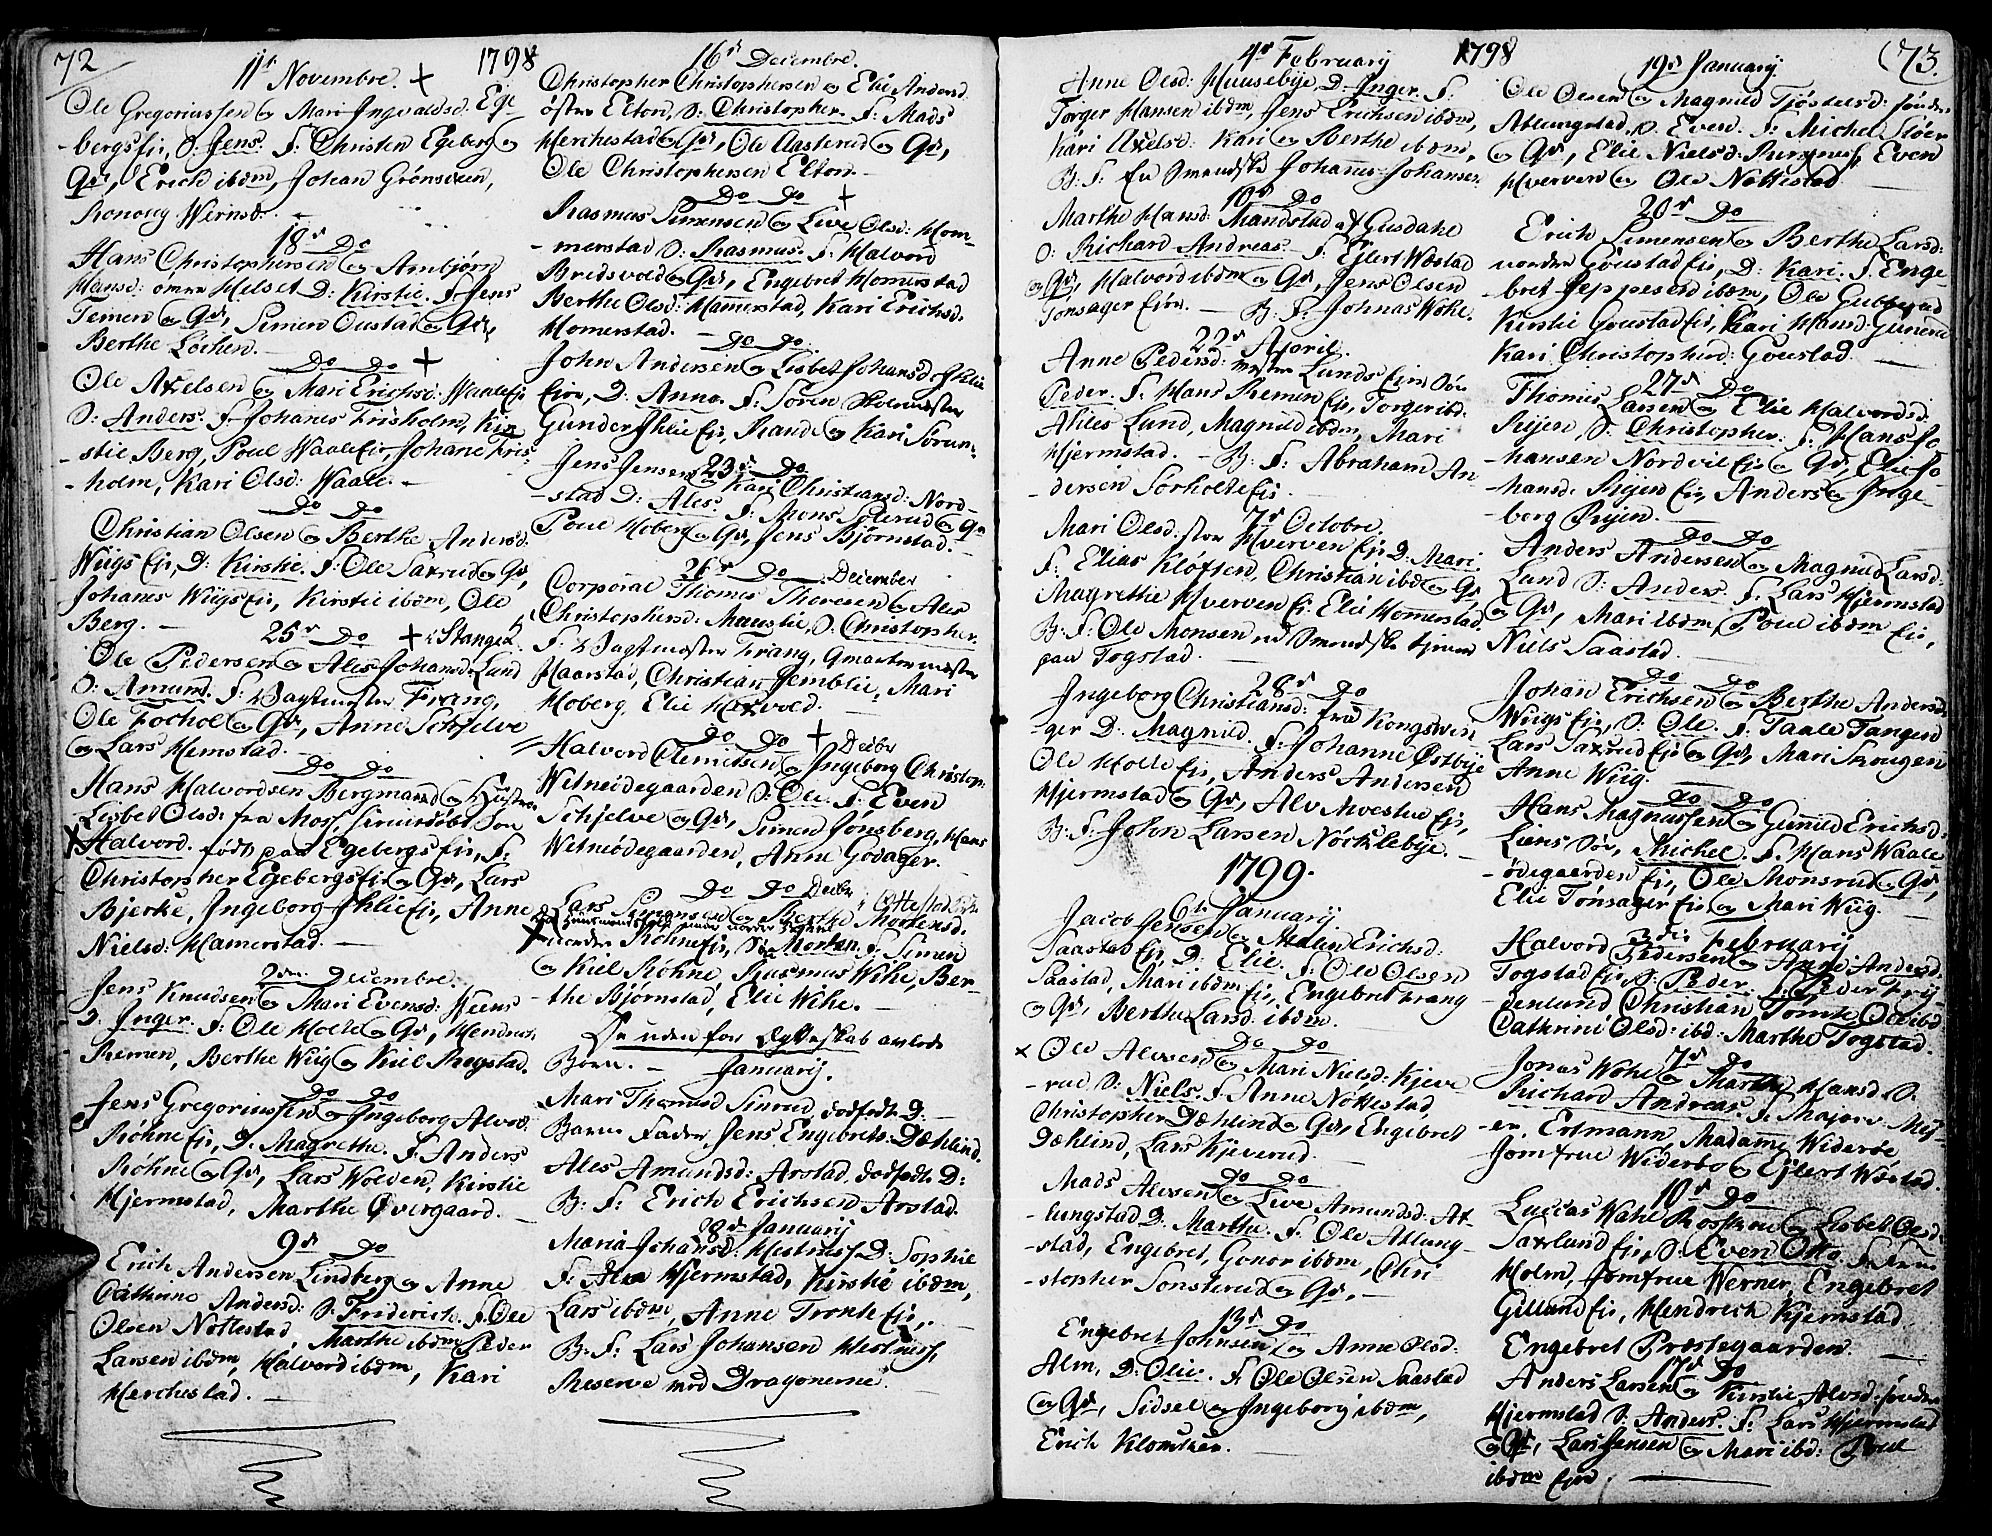 72
1798
11te Novembre. +
Ole Gregoriussen og Mari Ingvaldsd: Ege
-bergs Eie, S. Jens. F: Christen Egeberg og
Qv, Erich ibdm, Johan Grønsveen,
Ronoug Wernsd:
18de Do
Hans Christophersen og Arnbjørn
Hansd: Helset D: Kirstie. F: Jens
Temen og Qv, Simen Oustad og Qv,
Berthe Løchen.
Do Do +
Ole Axelsen og Mari Erichsd: Waale Ei
S: Anders. F: Johanes Friisholm, Kir
-stie Berg, Poul Waale Eie, Johane Friis
-holm, Kari Olsd: Waale.
Do Do
Christian Olsen og Berthe Andersd:
Wiigs Eie, D: Kirstie. F: Ole Saxrud og Qv,
Johanes Wiigs Eie, Kirstie ibdm, Ole
Berg.
25de Do + i Stange K.
Ole Pedersen og Ales Johansd: Lund
S: Amund. F: Vagtmester Frang,
Ole Fochol og Qv, Anne Schjelve
og Lars Hemstad.
Do Do
Hans Halvordsen Bergmand og Hustroe
Lisbet Olsd: fra Moss, Søn
Halvord. født paa Egebergs Eie, F:
Christopher Egebergs Eie og Qv, Lars
Bjerke, Ingeborg Ihlie Eie, Anne
Nielsd: Hamerstad.
2den Decembre.
Jens Knudsen og Mari Evensd: Weens
D. Inger. F: Ole Holle og Qv, Hendrich
Remen, Berthe Wiig og Kiel Ringstad.
Do Do
Jens Gregoriussen og Ingeborg Alvsd:
Røhne Eie, D: Magrethe. F: Anders
Røhne og Qv, Lars Wolden, Kirstie
Hjermstad, Marthe Øvergaard.
9de Do
Erich Andersen Lindberg og Anne
Cathrine Andersd: S: Friderich. F: Ole
Olsen Nottestad, Marthe ibdm Peder
Larsen ibdm, Halvord ibdm, Kari
Herchestad.
16de Decembre.
Christopher Christophersen og Elie Andersd.
østre Elton, S: Christopher. F: Mads
Herchestad og Qv, Ole Aasterud og Qv,
Ole Christophersen Elton.
Do Do +
Rasmus Simensen og Live Olsd: Hom-
-merstad S: Rasmus. F: Halvord
Bredsvold og Qv, Engebret Homerstad
Berthe Olsd: Hamerstad, Kari Erichsd.
Homerstad.
Do Do
John Andersen og Lisbet Johansd: Ihlie
Eie, D: Anne. F: Søren Skolemester
Gunder Ihlie Eie, Rande og Kari Sørum.
23de Do
Jens Jensen og Kari Christiansd: Nord-
-stad D: Ales. F: Mons Solerud og Qv
Poul Hoberg og Qv, Jens Bjørnstad.
26de Do December
Corporal Thomes Thoresen og Ales
Christophersd: Maustie, S: Christopher.
F: Vagtmester Frang, Qvarteermester
Haarstad, Christian Jemblie, Mari
Hoberg, Elie Hoxvold.
Do Do + Decbr
Halvord Clemetsen og Ingeborg Christop:
Wetneødegaarden S: Ole. F: Even
Schjelve og Qv, Simen Jønsberg, Hans
Wetneødegaarden, Anne Godager.
Do Do Decbr
Lars Simensen og Berthe Mortensd.
Røhne Eie, S: Morten. F: Simen
og Kiel Røhne, Rasmus Wihe, Ber-
-the Bjørnstad, Elie Wihe.
De uden for Ægteskab avlede
Børn. Januarij.
Mari Thomesd Sinrud, dødfødt D:
Barne Fader, Jens Engebrets: Dæhlind.
Ales Amundsd: Arstad, dødfødt D:
B: F: Erich Erichsen Arstad.
28de Januarij
Maria Johansd: Hestnes D: Sophie
F: Hjermstad, Kirstie ibdm,
Lars ibdm, Anne Tronh Eie,
B: F: Lars Johansen Hestnes,
Reserve ved Dragonerne.
1798
73.
4de Februarij
Anne Olsd: Huusebye D. Inger. F.
Torger Hansen ibdm, Jens Erichsen ibdm,
Kari Axelsd: Kari og Berthe ibdm,
B: F: En Smaadsk: Johannes Johansen
18de Do
Marthe Hansd: Mandstad af Gusdahl
S: Richard Andreas. F: Ejlert Wæstad
og Qv, Halvord ibdm og Qv, Jens Olsen
Tonsager Eien. B: F: Johnas Wohl.
22de April.
Anne Pedersd: Lunds Eie, Søn
Peder. F: Hans Remen Eie, Torger ibd:
Ahles Lund, Magnild ibdm, Mari
Hjermstad. B: F: Abraham An-
-dersen Sørholte Eie.
7de Octobre.
Mari Olsd: store Hverven Eie D: Mari
F: Elias Kløften, Christian ibd: og Qv
Magrethe Hverven Ei. Elie Homerstad.
B: F: Ole Monsen
paa Togstad.
28de Do
Ingeborg Christiansd: fra Kongswin
-ger D: Magnild. F: Johanne Østbye
Ole Holle Eie, Anders Andersen
Hjermstad og Qv, Alv Moestue Eie,
B: F: John Larsen Nørtslebye.
1799.
6te Januarij
Jacob Jensen og Malin Erichsd:
Saastad Eie, D: Elie. F: Ole Olsen
Saastad, Mari ibdm Eie, Engebret Frang
og Qv, Berthe Larsd: ibdm.
Do Do
× Ole Alvsen og Mari Nielsd: Kjeve
-rud S: Niels. F: Anne Nottestad,
Christopher Dæhlind og Qv, Engebret
Dæhlind, Lars Kjeverud.
Do Do
Mads Alvsen og Live Amundsd: At-
-lungstad D. Marthe. F: Ole Atlung-
-stad, Engebret, Gonor ibdm, Chri
-stopher Sonsterud og Qv,
13de Do
Engebret Johnsen og Anne Olsd:
Alm, D: Olie. F: Ole Olsen Saastad
og Qv, Sidsel og Ingeborg ibdm,
Erich Klomsten.
19de Januarij
Ole Olsen og Magnild Tjøstelsd: søndre
Atlungstad, S. Even. F: Michel Sløer
og Qv, Elie Nielsd: Even
Hverven og Ole Nottestad
20de Do
Erich Simensen og Berthe Larsd:
nordre Goustad Eie, D: Kari. F: Enge-
-bret Jeppesen ibdm, Ole Gubberud
Kirstie Goustad Eie, Kari Hansd:
Kari Christophersd: Goustad.
27de Do
Thomes Larsen og Elie Halvordsd:
Rijen, S: Christopher. F: Hans Jo
-hansen Nordvie Eie og Qv, Elie Jo
-hansd. Rijen Eie, Anders og Inge-
-berg Rijen.
Do Do
Anders Andersen og Magnild Larsd:
Lund S: Anders. F: Lars Hjermstad
og Qv, Mari ibdm, Poul ibdm Eie,
Niels Saastad.
Do Do
Johan Erichsen og Berthe Andersd:
Wiigs Eie, S. Ole. F: Taale Tangen
Lars Saxrud Eie og Qv, Mari Skougen
Anne Wiig.
Do Do
Hans Magnussen og Gunild Erichsd:
Luns Sør, Michel. F: Hans Waale
-ødegaarden Eie, Ole Monsrud og Qv,
Elie Tønsager Eie og Mari Wiig.
3die Februarij
Halvord Pedersen og Anne Andersd.
Togstad Eie, S: Peder. F: Peder Fry-
-denlund Christian Tomte Ole ibd
Cathrine Olsd: ibd: Marthe Togstad.
7de Do
Jonas Wohl og Marthe Hansd. S.
Richard Andreas. F. Major Mej-
-er, Ertmann, Madame Widerøe
Jomfrue Widerøe og Ejlert Wæstad.
10de Do
Luccas Wahl og Lisbet Olsd
Saxlund Eie, S: Even Otto. F:
Holm, Jomfrue Werner, Engebret
Gillund Eie, Hendrich Hjermstad
Engebret Præstegaarden.
17de Do
Anders Larsen og Kirstie Alvsd: søndre
Hjermstad S: Anders. F. Lars Hjermstad
og Qv, Lars Jensen og Mari ibd: Poul
ibdm Eie.